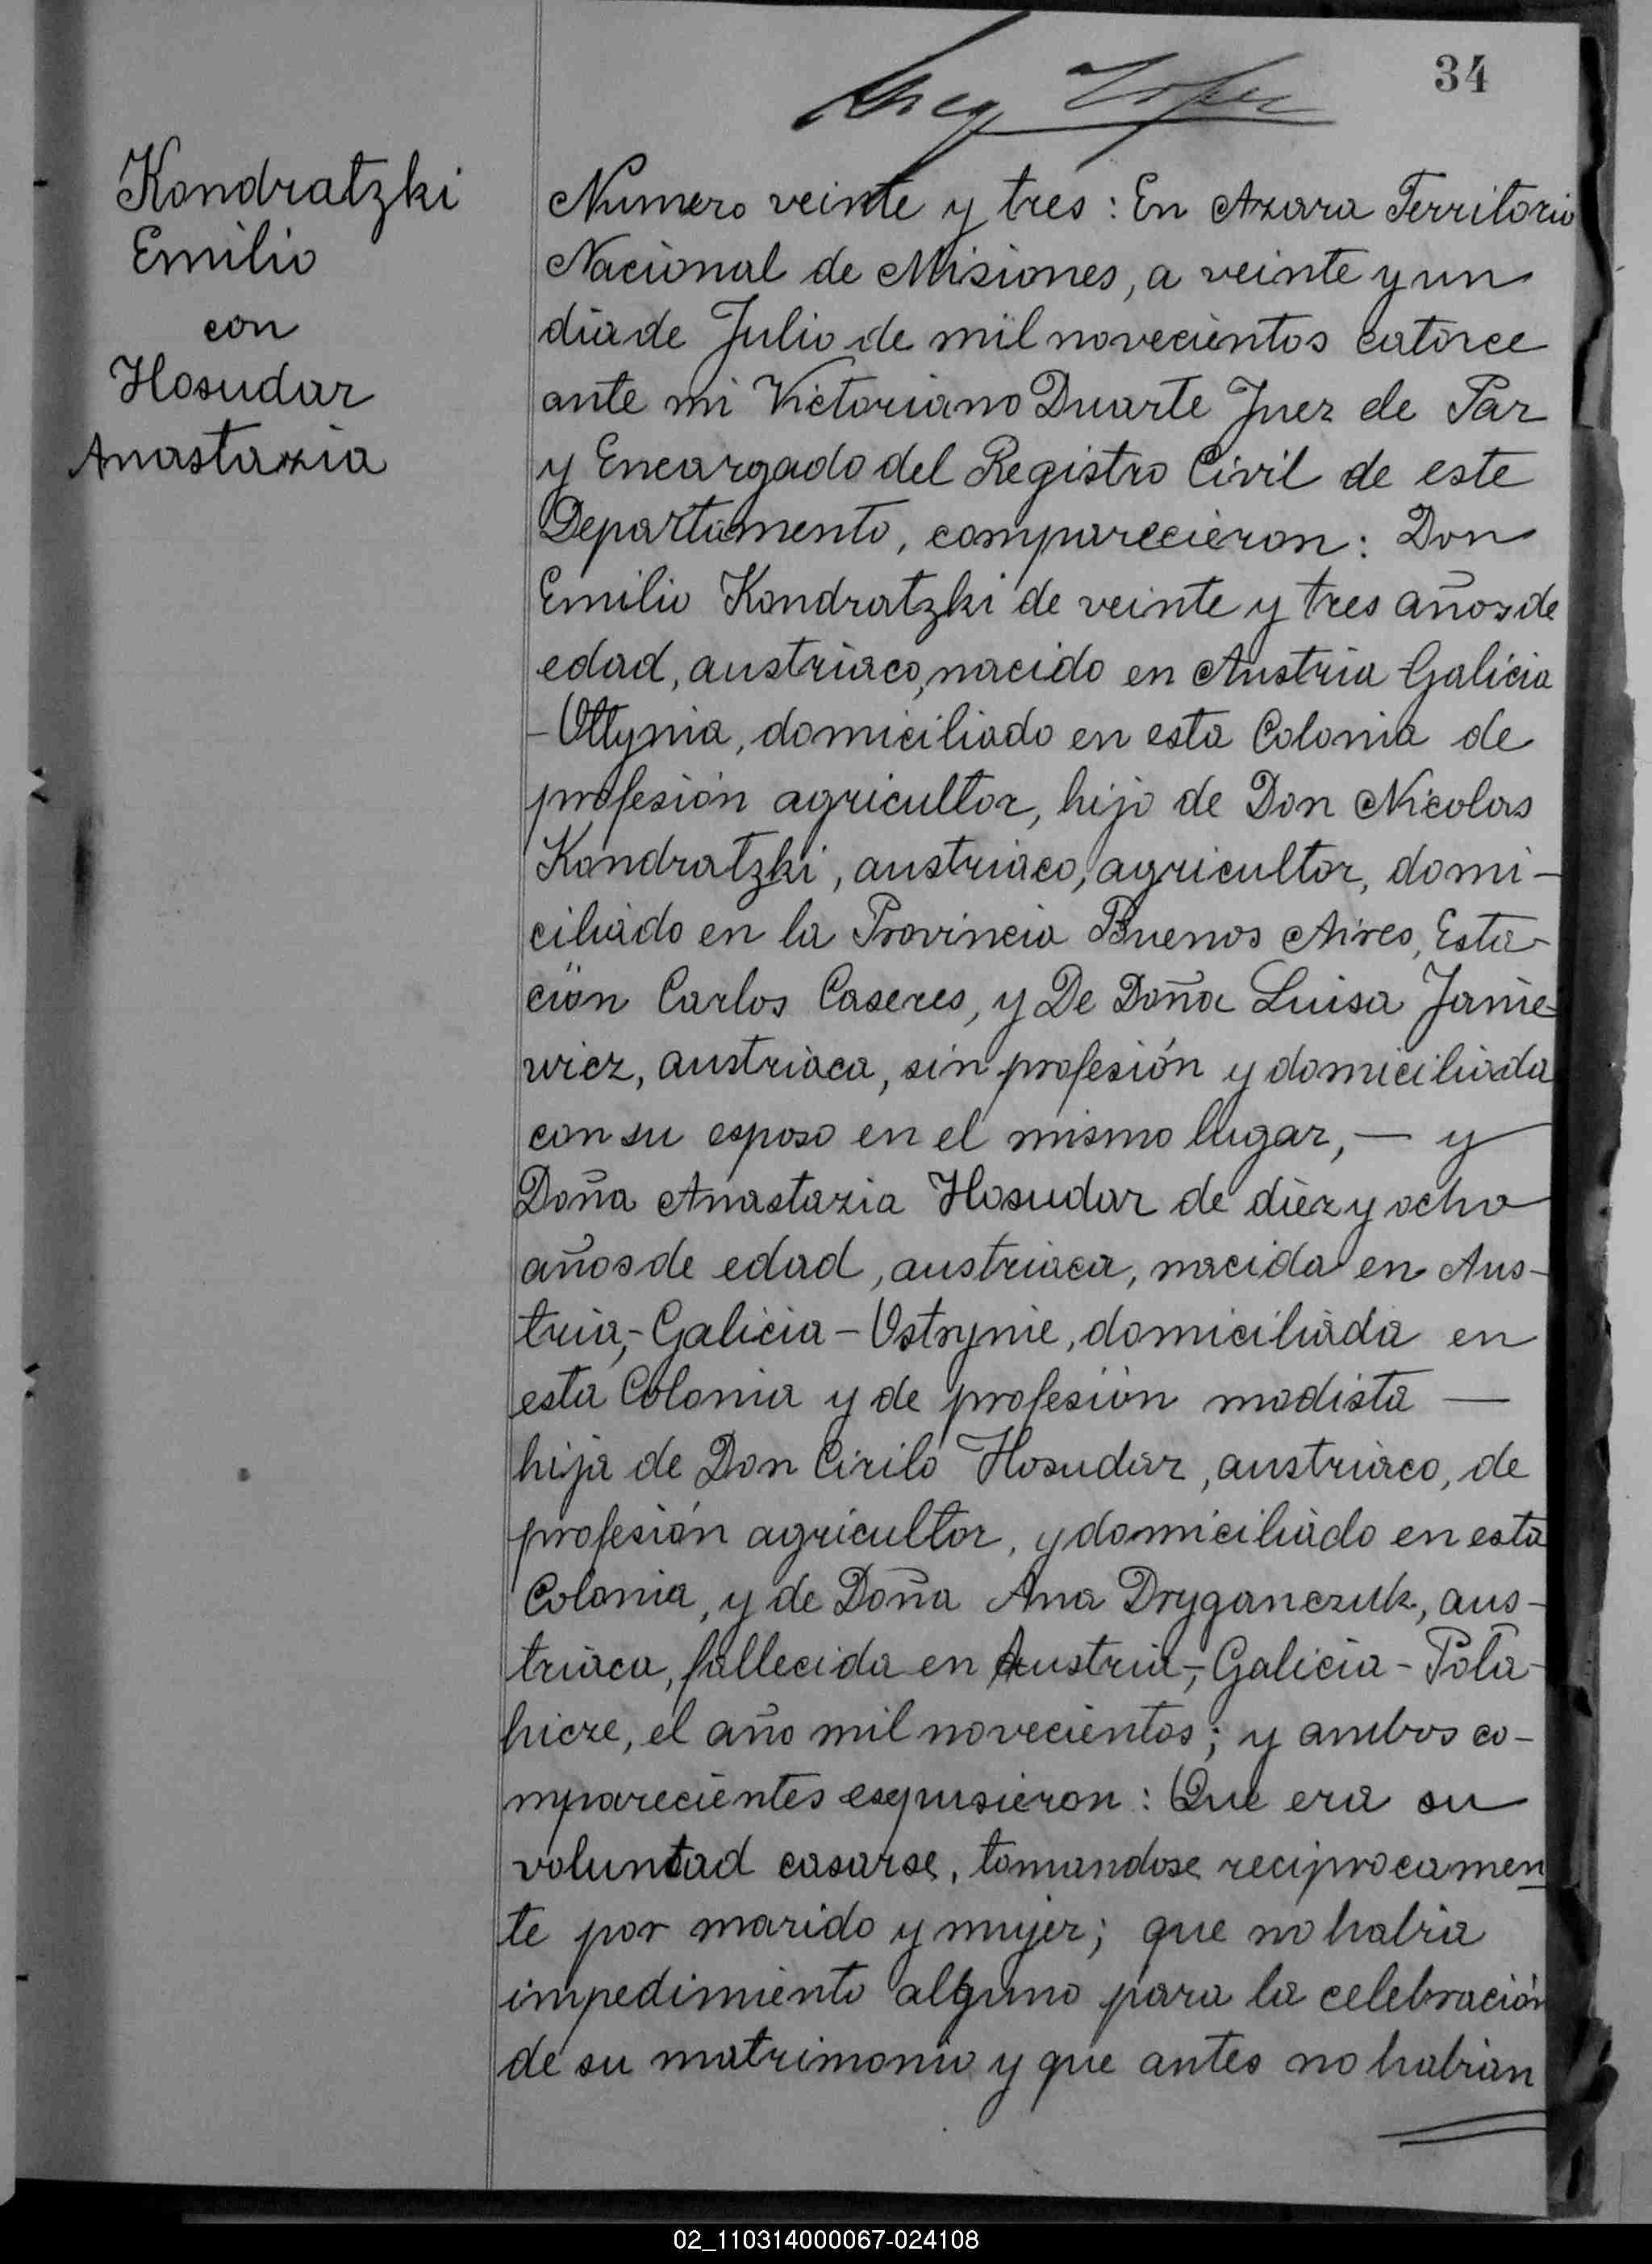 34
Kondratzki
Emilio
con
Hosudar
Anastazia
Numero veinte y tres: En Azara Territorio
Nacional de Misiones, a veinte y un
dia de Julio de mil novecientos catorce
ante mi Victoriano Duarte Juez de Paz
y Encargado del Registro Civil de este
Departamento, comparecieron: Don
Emilio Kondratzki de veinte y tres años de
edad, austriaco, nacido en Austria Galicia
- Ottynia, domiciliado en esta Colonia de
profesión agricultor, hijo de Don Nicolas
Kondratzki, austriaco, agricultor, domi-
ciliado en la Provincia Buenos Aires, Esta-
ción Carlos Caseres, y De Doña Luisa Janie-
wicz, austriaca, sin profesión y domiciliada
con su esposo en el mismo lugar, — y
Doña Anastazia Hosudar de diez y ocho
años de edad, austriaca, nacida en Aus-
tria,- Galicia - Ostrynie, domiciliada en
esta Colonia y de profesión modista —
hija de Don Cirilo Hosudar, austriaco, de
profesión agricultor, y domiciliado en esta
Colonia, y de Doña Ana Dryganczuk, aus-
triaca, fallecida en Austria,- Galicia - Pola-
hicze, el año mil novecientos; y ambos co-
mparecientes expusieron: Que era su
voluntad casarse, tomandose reciprocamen
te por marido y mujer; que no habia
impedimiento alguno para la celebración
de su matrimonio y que antes no habian
02_110314000067-024108